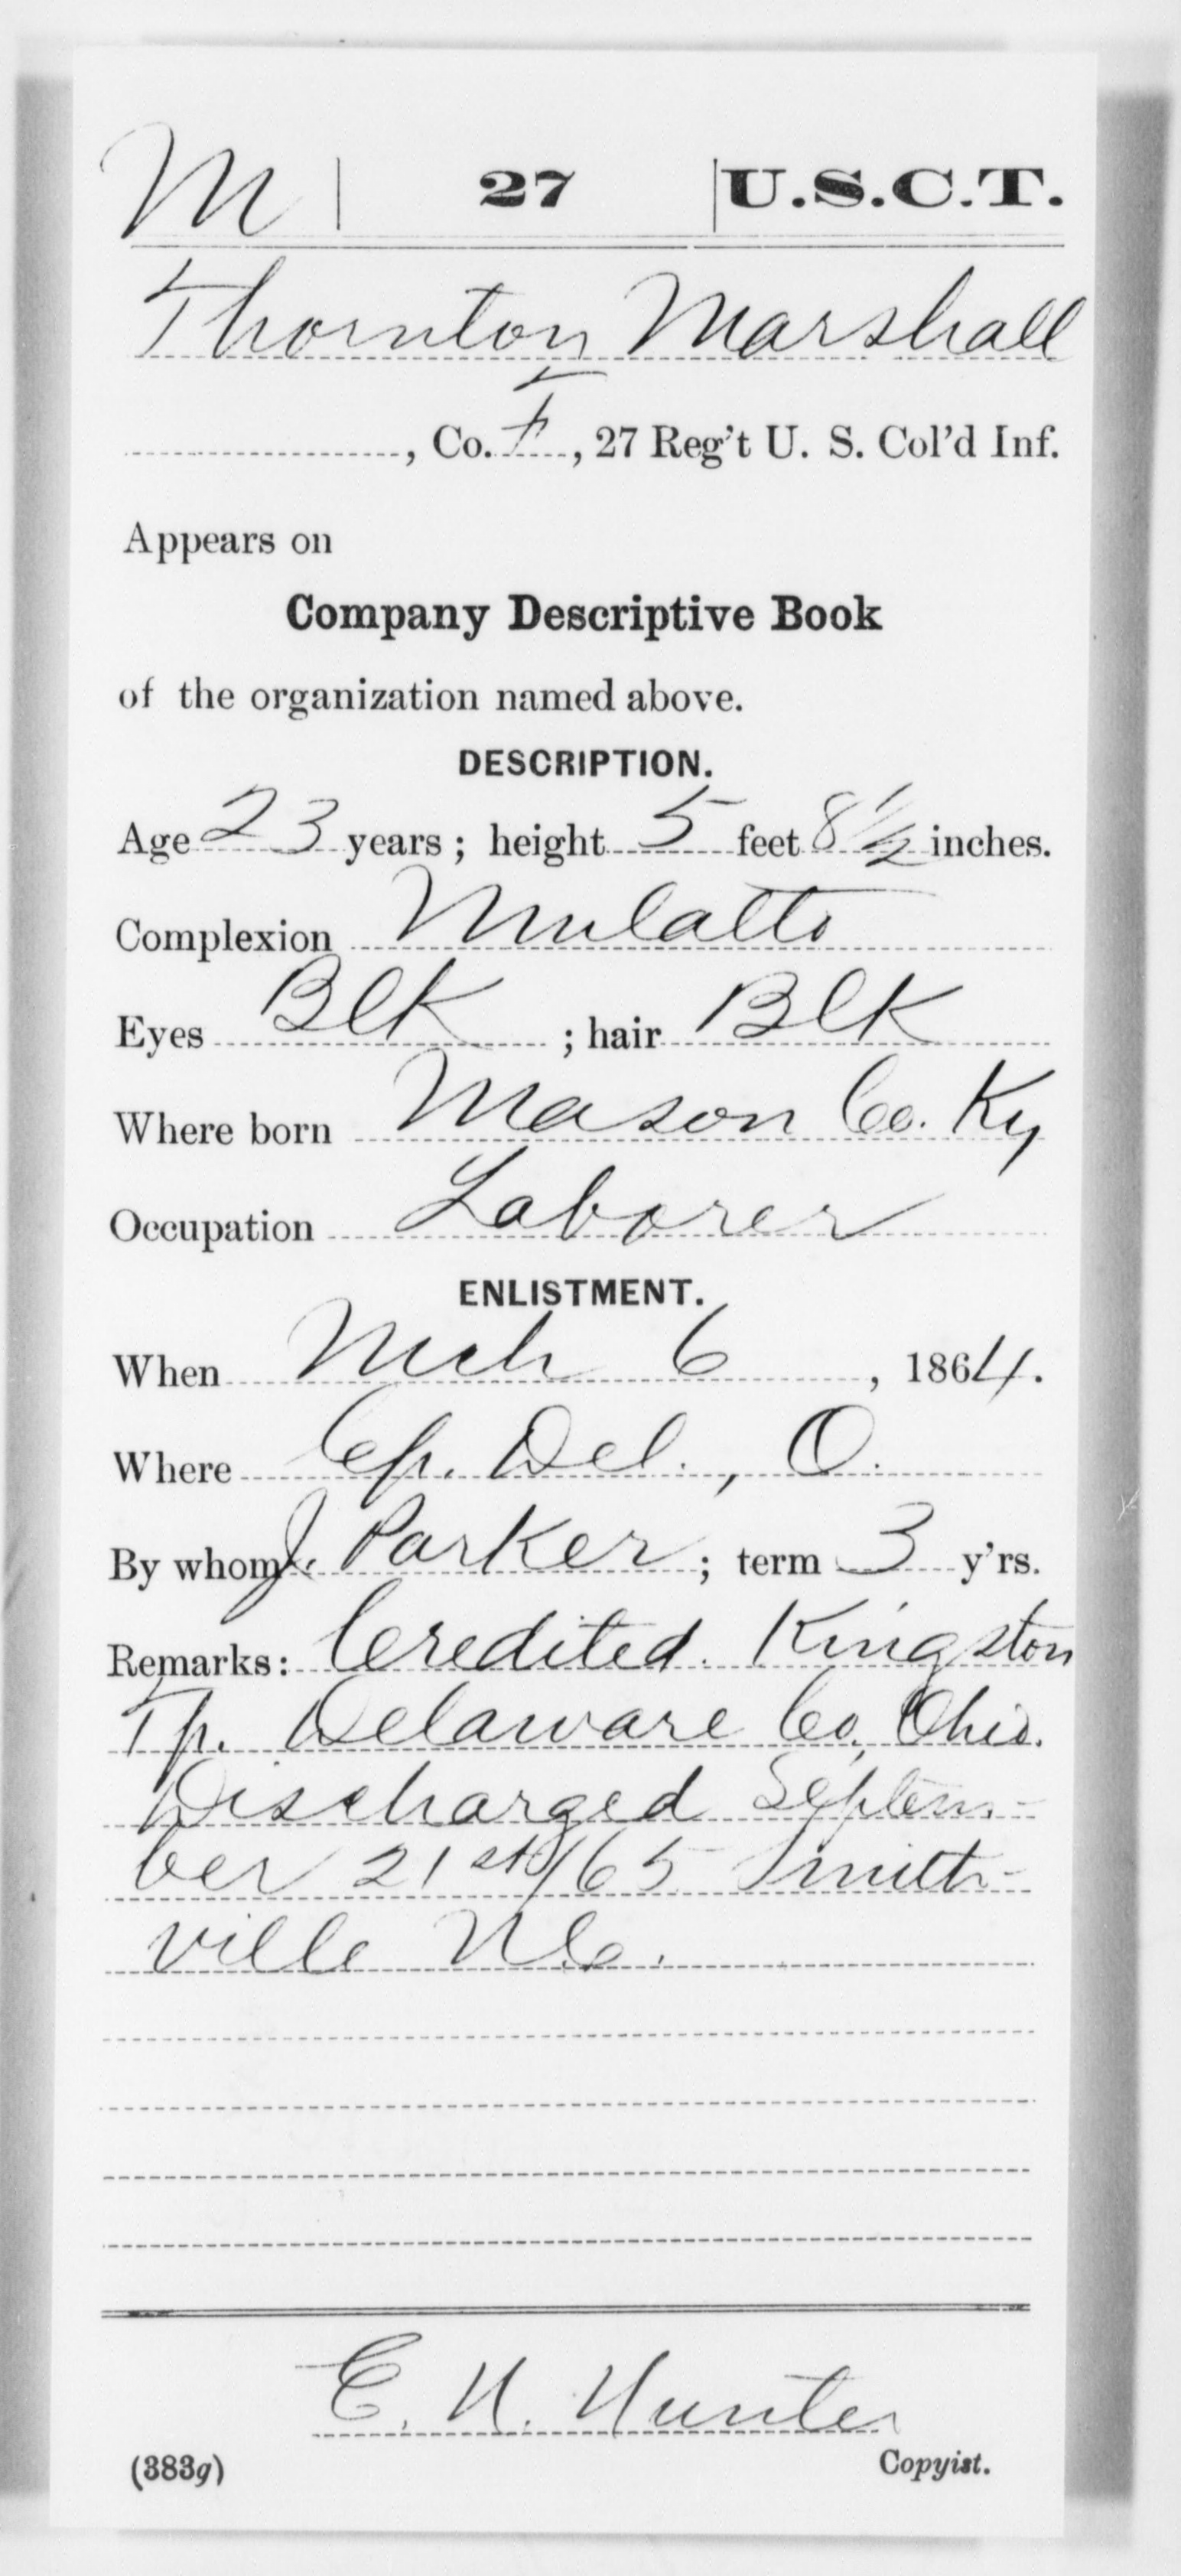 M | 27 | U.S.C.T.
Thornton Marshall
, Co. F, 27 Reg't U. S. Col'd Inf.
Appears on
Company Descriptive Book
of the organization named above.
DESCRIPTION.
Age 23 years; height 5 feet 8½ inches.
Complexion Mulatto
Eyes Blk; hair Blk
Where born Mason Co. Ky
Occupation Laborer
ENLISTMENT.
When Mch 6, 1864.
Where Cp. Del., O.
By whom J. Parker; term 3 y'rs.
Remarks: Credited Kingston
Tp. Delaware Co, Ohio.
Discharged Septem-
ber 21st/65 Smith-
ville N.C.
E. N. Hunter
(383g) Copyist.